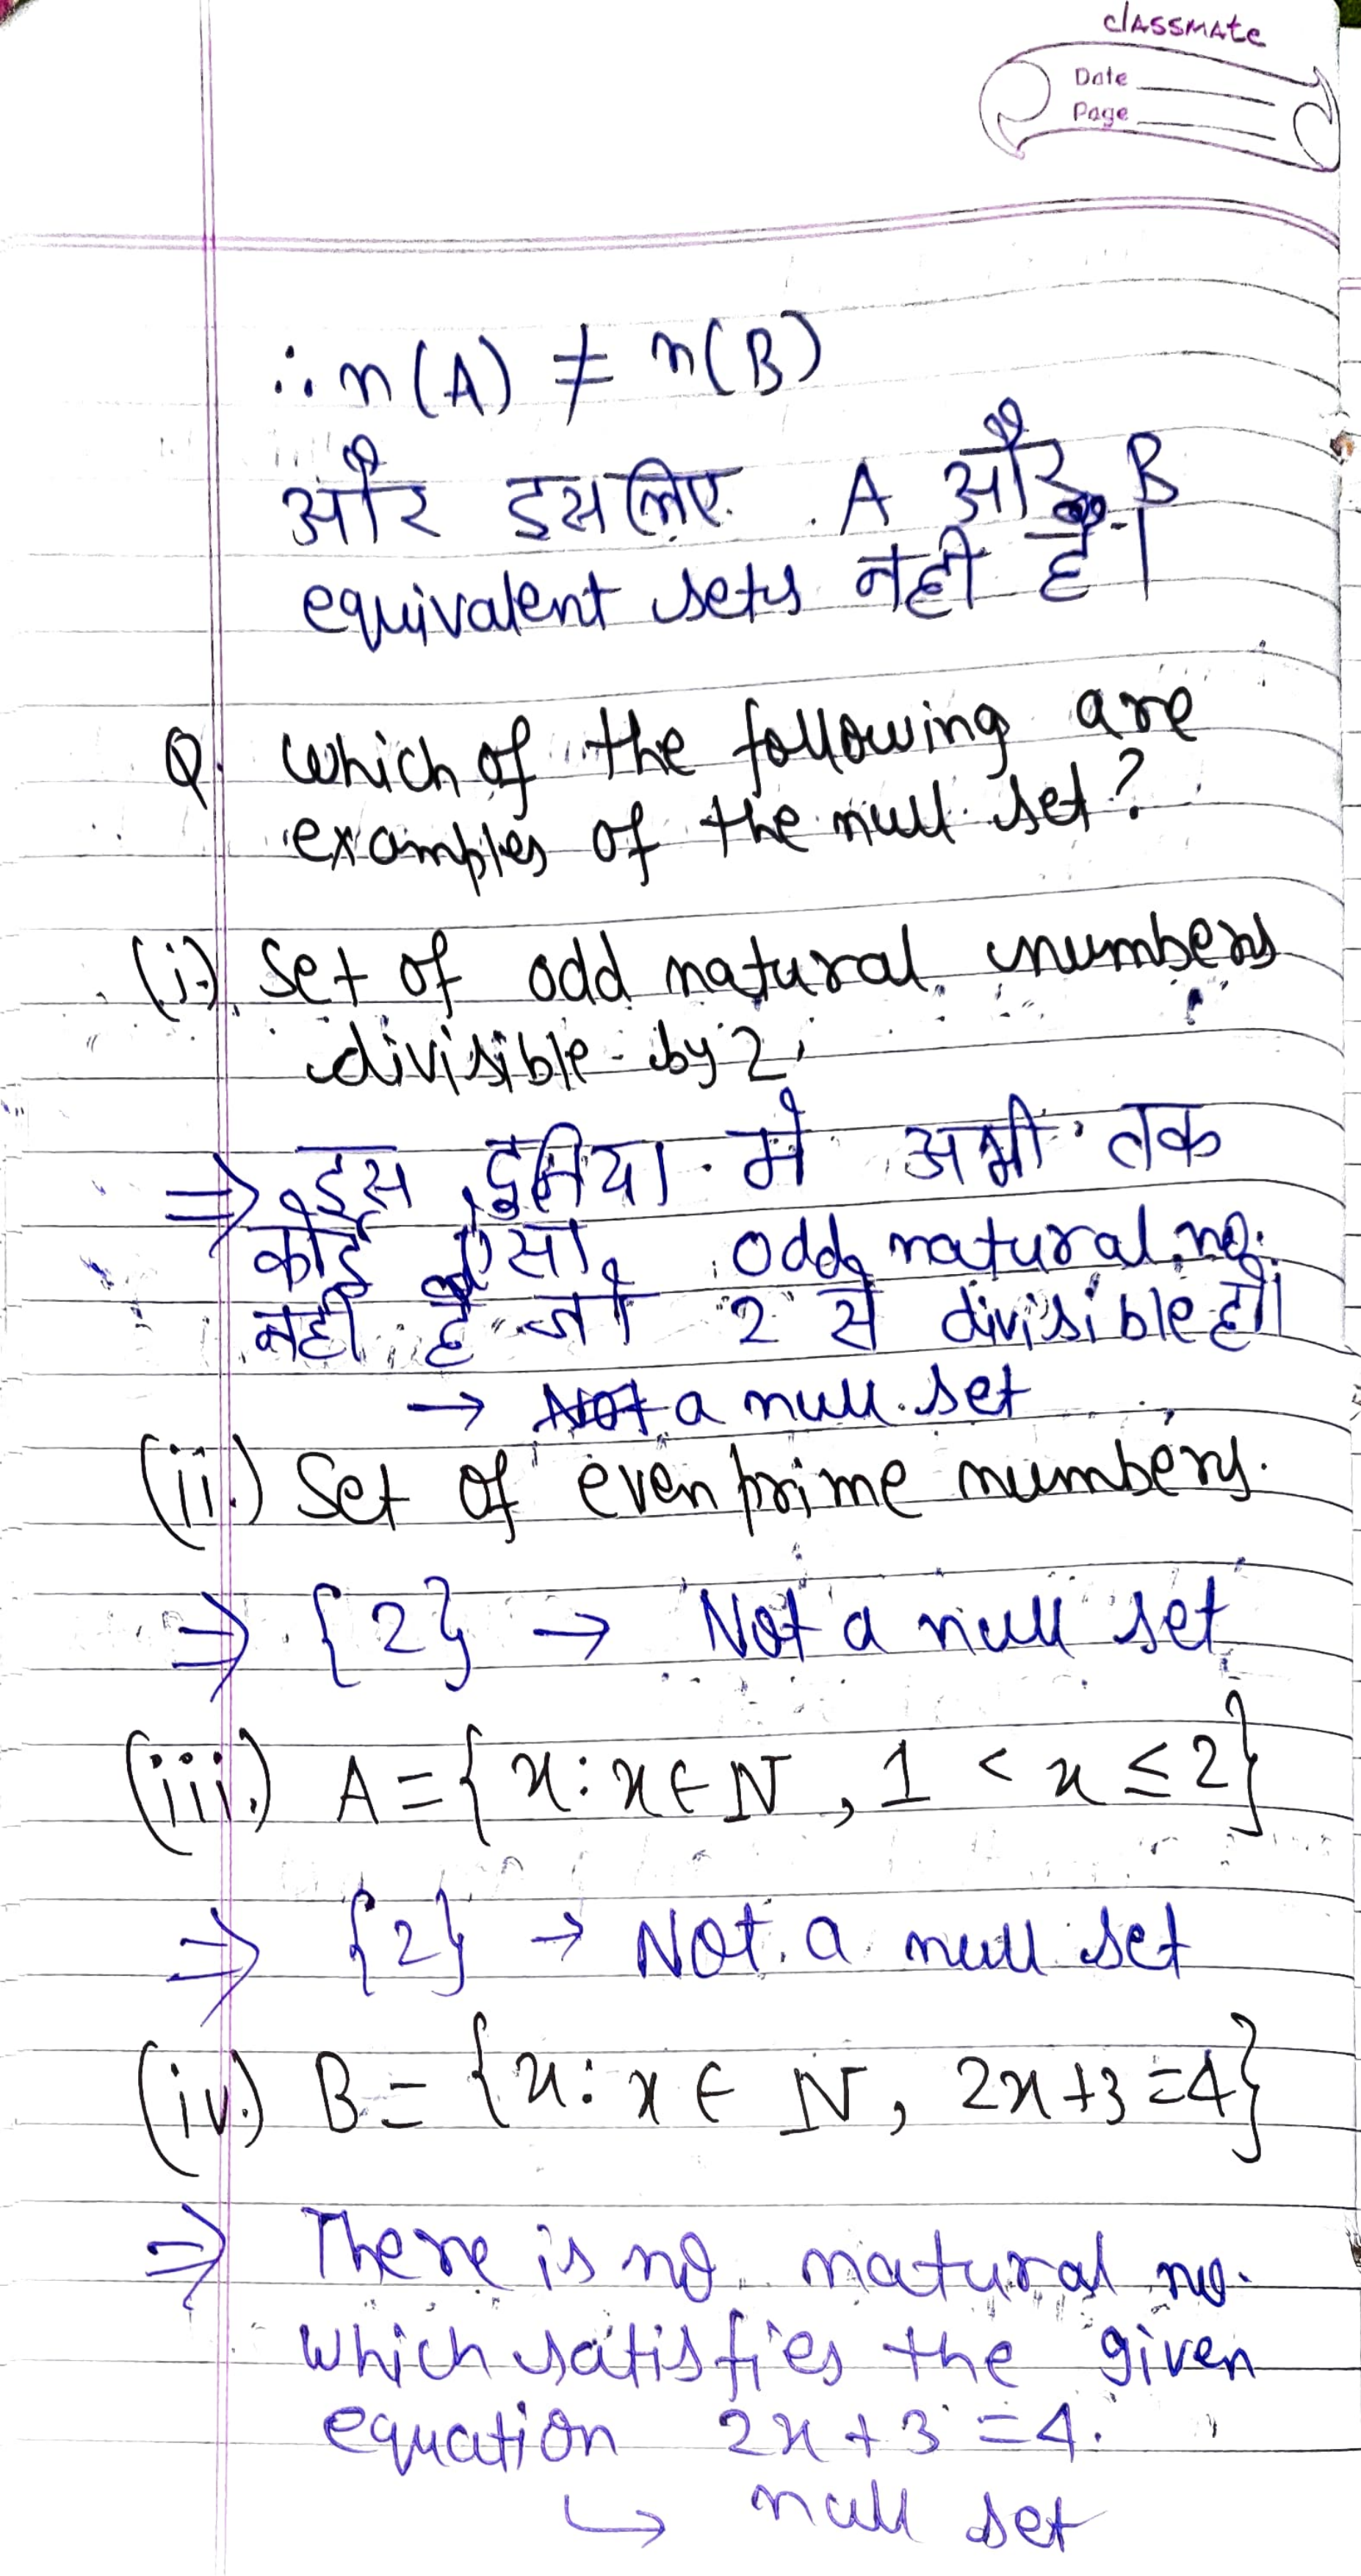 classmate
Date
Page
∴ n(A) ≠ n(B)
और इसलिए A और B
equivalent sets नही है।
Q. Which of the following are
examples of the null set?
(i.) Set of odd natural numbers
divisible by 2.
⇒ इस दुनिया में अभी तक
कोई ऐसा odd natural no.
नहीं है जो 2 से divisible हो।
→ a null set
(ii.) Set of even prime numbers.
⇒ {2} → Not a null set
(iii.) A = {x : x ∈ N, 1 < x ≤ 2}
⇒ {2} → Not a null set
(iv.) B = {x : x ∈ N, 2x+3=4}
⇒ There is no natural no.
which satisfies the given
equation 2x+3=4.
↳ null set